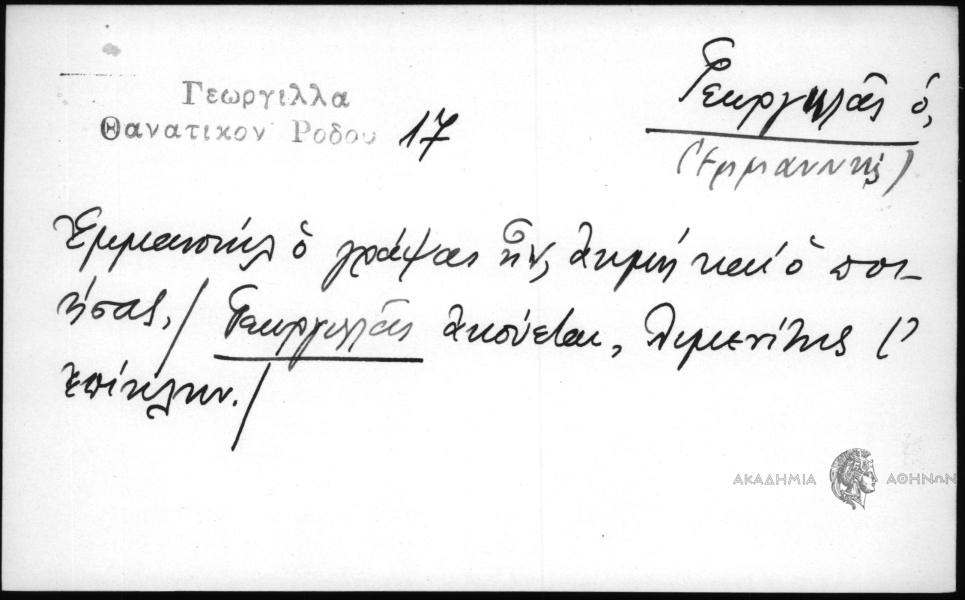 Γεωργιλλα
Θανατικον Ροδου 17
Γεωργιλᾶς ὁ,
Ἐμμανουὴλ ὁ γράψας ἦν, ἀκμὴ καὶ ὁ ποι-
ήσας, / Γεωργιλλᾶς ἀκούεται, Λιμενίτης (?
ἐπίκλην. /
ΑΚΑΔΗΜΙΑ ΑΘΗΝΩΝ